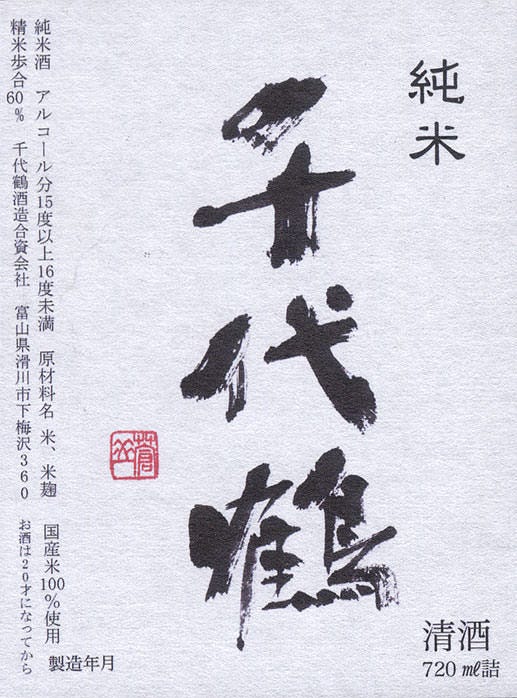 純米
千代鶴
清酒
720㎖詰
純米酒 アルコール分15度以上16度未満 原材料名 米、米麹 国産米100%使用
精米歩合60% 千代鶴酒造合資会社 富山県滑川市下梅沢360 お酒は20才になってから
製造年月